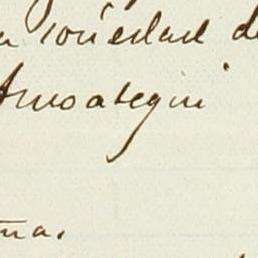 sociedad de
Amoategui
ma.